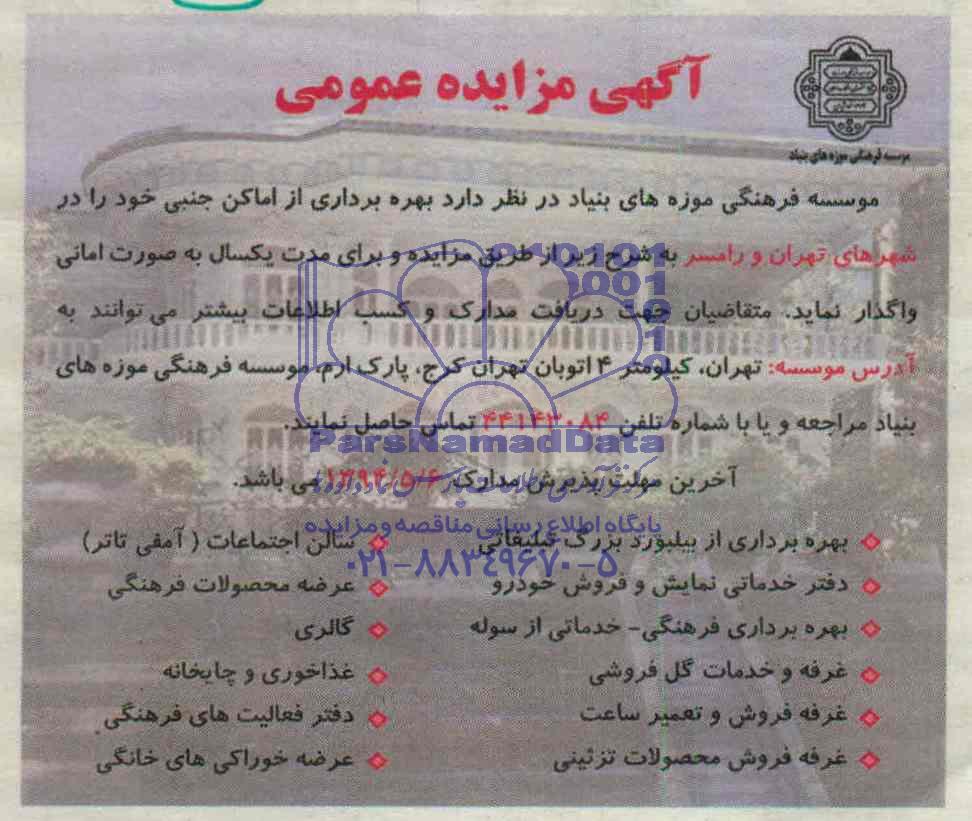 آگهی مزایده عمومی
موسسه فرهنگی موزه های بنیاد
موسسه فرهنگی موزه های بنیاد در نظر دارد بهره برداری از اماکن جنبی خود را در
شهرهای تهران و رامسر به شرح زیر از طریق مزایده و برای مدت یکسال به صورت امانی
واگذار نماید. متقاضیان جهت دریافت مدارک و کسب اطلاعات بیشتر می توانند به
آدرس موسسه: تهران، کیلومتر ۴ اتوبان تهران کرج، پارک ارم، موسسه فرهنگی موزه های
بنیاد مراجعه و یا با شماره تلفن ۴۴۱۴۳۰۸۴ تماس حاصل نمایند.
آخرین مهلت پذیرش مدارک ۱۳۹۴/۵/۶ می باشد.
بهره برداری از بیلبورد بزرگ تبلیغاتی
دفتر خدماتی نمایش و فروش خودرو
بهره برداری فرهنگی- خدماتی از سوله
غرفه و خدمات گل فروشی
غرفه فروش و تعمیر ساعت
غرفه فروش محصولات تزئینی
سالن اجتماعات ( آمفی تاتر)
عرضه محصولات فرهنگی
گالری
غذاخوری و چایخانه
دفتر فعالیت های فرهنگی
عرضه خوراکی های خانگی
ParsNamadData
پایگاه اطلاع رسانی مناقصه و مزایده
۰۲۱-۸۸۳۴۹۶۷۰-۵